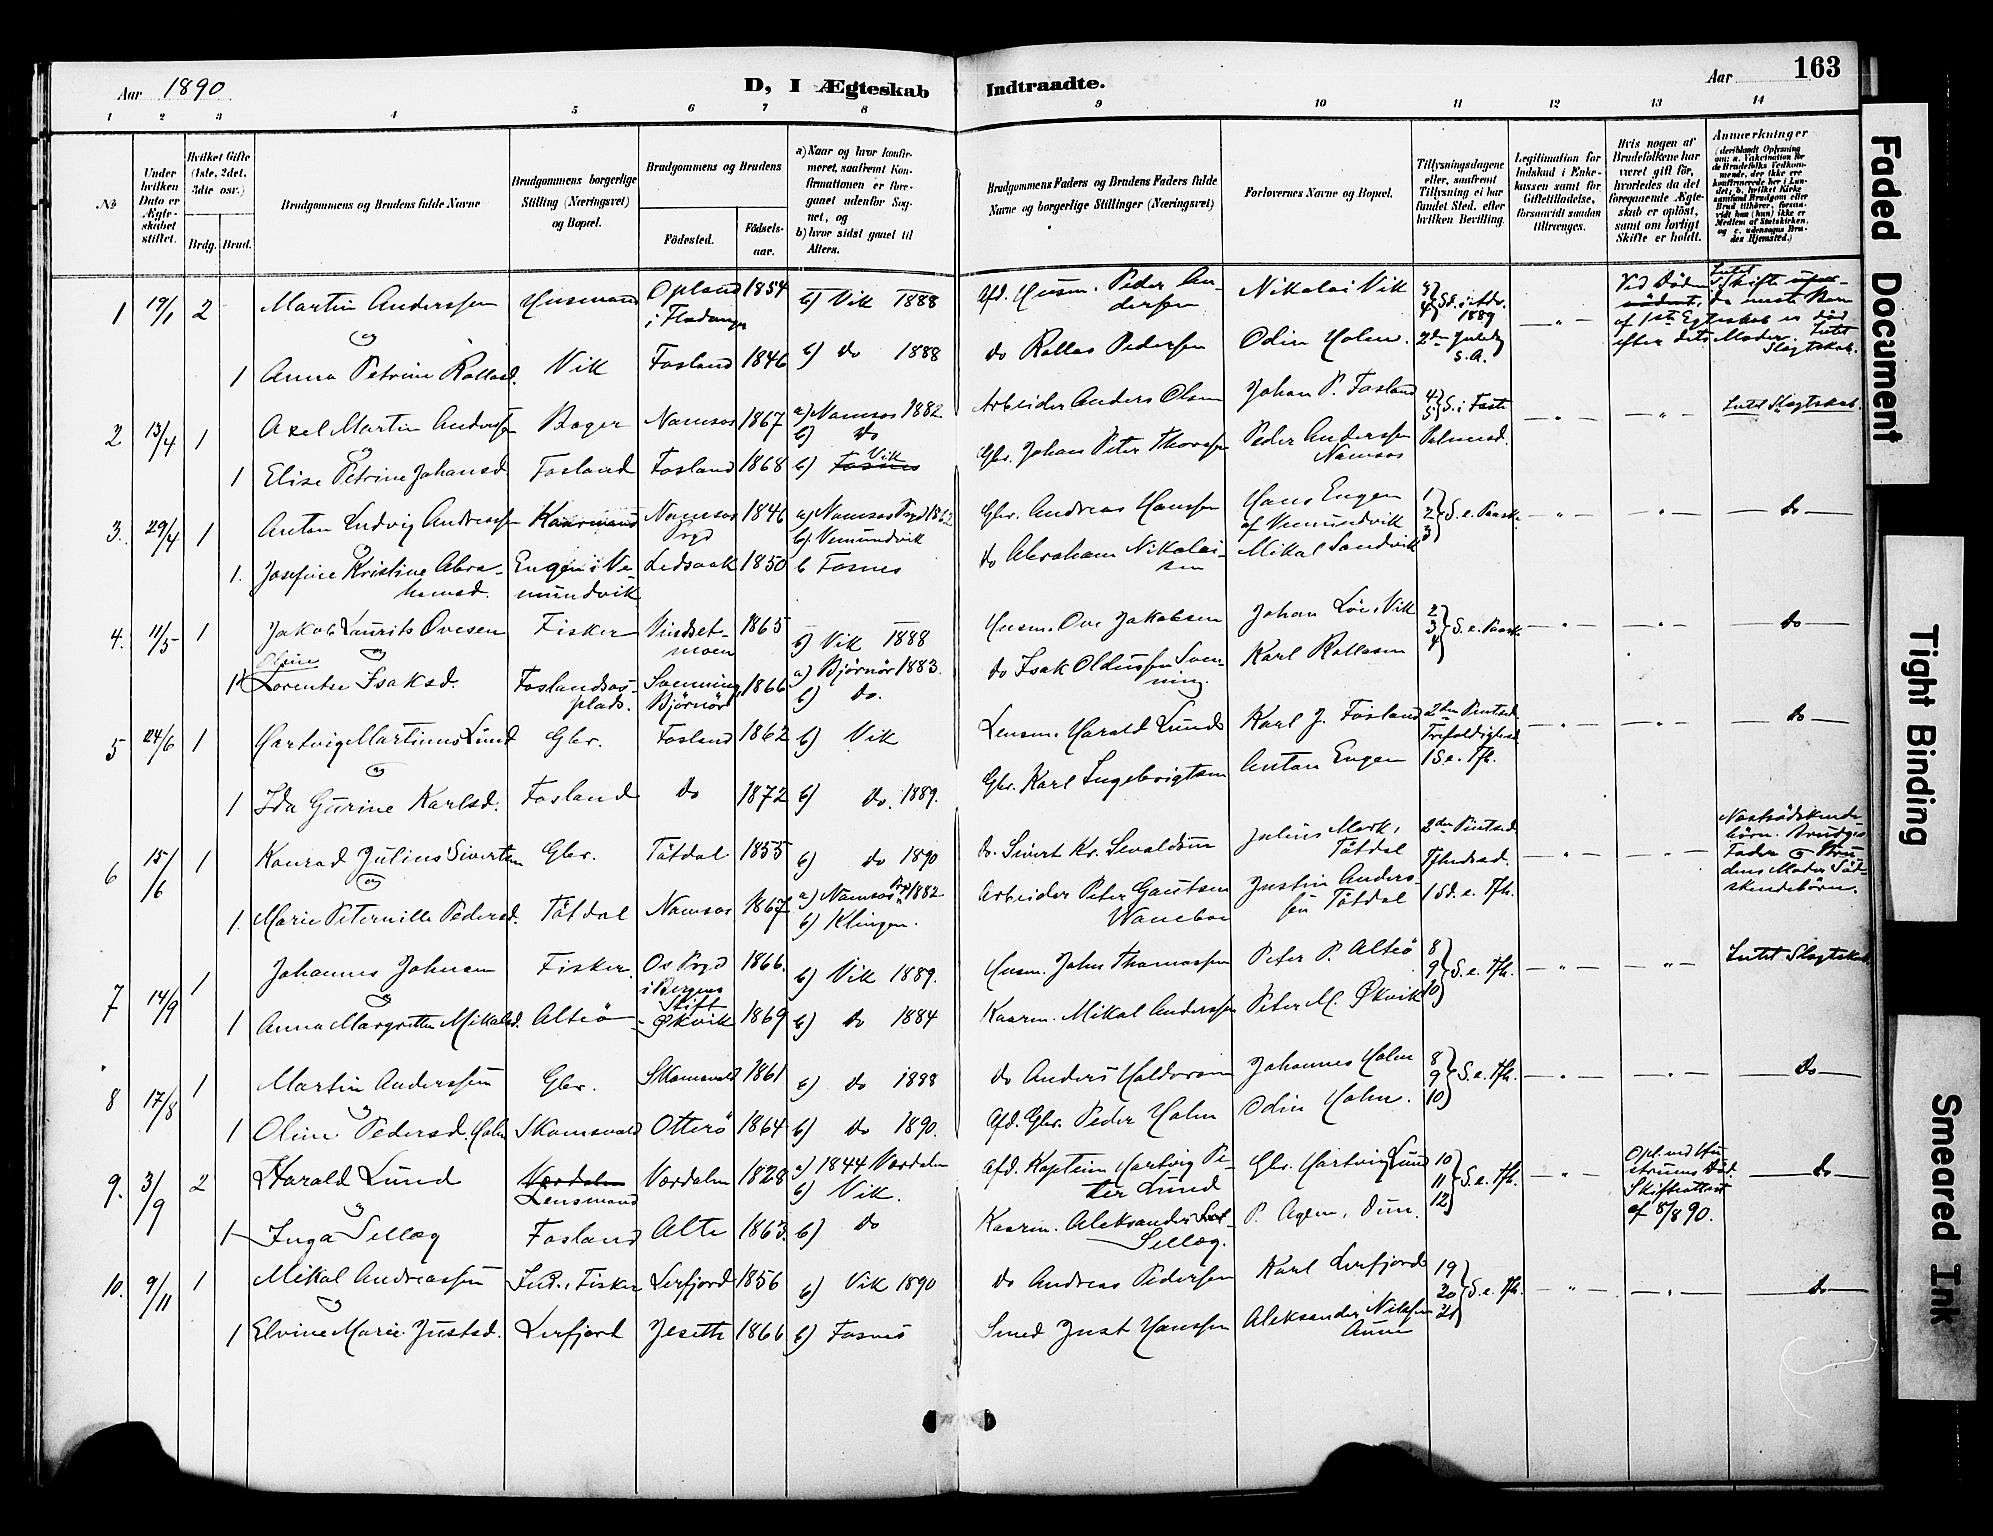 Aar 1890.
D, I Ægteskab Indtraadte.
Aar 163
1 2 3 4 5 6 7 8 9 10 11 12 13 14
№
Under hvilken Dato er Ægteskabet stiftet.
Hvilket Gifte (1ste, 2det, 3die osv.)
Brdg. Brud.
Brudgommens og Brudens fulde Navne
Brudgommens borgerlige Stilling (Næringsvei) og Bopæl.
Brudgommens og Brudens
Födested. Födsels-aar.
a) Naar og hvor konfirmeret, saafremt Konfirmationen er foregaaet udenfor Sognet, og
b) hvor sidst gaaet til Alters.
Brudgommens Faders og Brudens Faders fulde Navne og borgerlige Stillinger (Næringsvei)
Forlovernes Navne og Bopæl.
Tillysningsdagene eller, saafremt Tillysning ei har fundet Sted, efter hvilken Bevilling.
Legitimation for Indskud i Enkekassen samt for Giftetilladelse, forsaavidt saadan tiltrænges.
Hvis nogen af Brudefolkene har været gift för, hvorledes da det foregaaende Ægteskab er oplöst, samt om lovligt Skifte er holdt.
Anmærkninger
1 19/1 2 Martin Anderssen Husmand Opland i Fladanger 1854 b) Vik 1888 Afd. Husm. Peder Andersen Nikolai Vik 3 4 Sd. i Adv. 1889 — " — Ved Döden. Intet Skifte
og
1 Anna Petrine Rollosd. Vik Fosland 1846 b) do 1888 do Rollos Pedersen Odin Holm. 2den Juledg s. A. efter dets Moder. Intet Slægtskab.
2 13/4 1 Axel Martin Anderssen Bager Namsos 1867 a) Namsos 1882 b) do Arbeider Anders Olsen Johan P. Fosland 4 5 S. i Faste — " — — " — Intet Slægtskab.
og
1 Elise Petrine Johansd. Fosland Fosland 1868 b) Fosnes Vik Gbr. Johan Peter Thorssen Peder Anderssen Namsos Palmesd.
3. 29/4 1 Anton Ludvig Andreassen Kaarmand Namsos Prgd 1846 a) Namsos Prgd 1862 b) Vemundvik Gbr. Andreas Hanssen Hans Engen af Vemundvik 1 2 3 S. e. Paaske — " — — " — — do —
og
1. Josefine Kristine Abrahamsd. Engen i Vemundvik Ledsaak 1850 b Fosnes do Abraham Nikolaisen Mikal Sandvik
4. 11/5 1 Jakob Laurits Ovesen Fisker Vindsetmoen 1865 b) Vik 1888 Husm. Ove Jakobsen Johan Löe, Vik 2 3 4 S. e. Paaske — " — — " — do —
og
1 Oline Lorentse Isaksd. Foslandsosplads. Svenning, Björnör 1866 a) Björnör 1883. b) do. do Isak Oldussen Svenning. Karl Rollosen
5 24/6 1 Hartvig Martinus Lund Gbr. Fosland 1862 b) Vik Lensm. Harald Lund Karl J. Fosland 2den Pintsed. Trefoldighed — " — — " — — do —
og
1 Ida Gurine Karlsd. Fosland do 1872 b) do. 1889. Gbr. Karl Ingebrigtsen Anton Engen 1 S. e. Tfh.
6 15/6 1 Konrad Julius Sivertsen Gbr. Tötdal 1855 b) do 1890 do. Sivert Kr. Sevaldsen Julius Mork, Tötdal 2den Pintsed. Tfhedssd. — " — — " — Næstsödskendebörn. Brudgs. Fader og Brudens Moder Södskendebörn.
og
1. Marie Peternille Pedersd. Tötdal Namsos 1867 a) Namsos Prgd 1882 b) Klingen. Arbeider Peter Gautsen Wanebo Justin Anderssen Tötdal 1 Sd. e. Tfh.
7 14/9 1 Johannes Johnsen Fisker. Os Prgd i Bergens Stift 1866. b) Vik 1889. Husm. John Thomassen Peter P. Alteö 8 9 10 S. e. Tfh. — " — — " — Intet Slægtskab.
og
1 Anna Margrethe Mikalsd. Alteö Økvik 1869 b) do 1884 Kaarm. Mikal Anderssen Peter M. Økvik
8 17/8 1 Martin Anderssen Gbr. Skomsvold 1861 b) do 1888 do Anders Haldorsen Johannes Holm 8 9 10 S. e. Tfh. — " — — " — do —
og
1 Oline Pedersd. Holm Skomsvold Otterö 1864 b) do 1890. Afd. Gbr. Peder Holm Odin Holm.
9. 3/9 2 Harald Lund Værdalen Lensmand Værdalen 1828 a) 1844 Værdalen b) Vik. Afd. Kaptein Hartvig Peter Lund Gbr. Hartvig Lund 10 11 12 S. e. Tfh. — " — Opl. ved Hustruens Död. Skifteattest af 8/8 90. — do —
og
1 Inga Sellæg Fosland Alte 1863. b) do Kaarm. Aleksander Sellæg. P. Agen, Dun.
10. 9/11 1 Mikal Andreassen I. & B., Fisker Lerfjord 1856 b) Vik 1890 do Andreas Pedersen Karl Lerfjord 19 20 21 S. e. Tfh. — " — — " — — do —
og
1 Elvine Marie Justsd. Lerfjord Jeseth 1866 b) Fosnes Smed Just Hanssen Aleksander Nilssen Aunu
Faded Document
Tight Binding
Smeared Ink